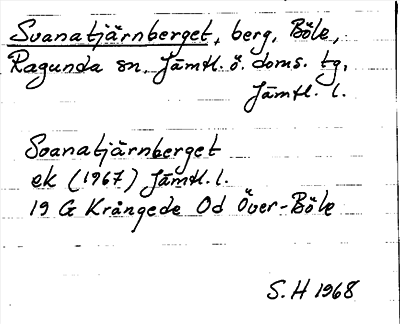 Svanatjärnberget, berg, Böle,
Ragunda sn. Jämtl. ö. doms. tg,
Jämtl. l.
Svanatjärnberget
ek (1967) Jämtl. l.
19 G Krångede Od Över-Böle
S. H 1968